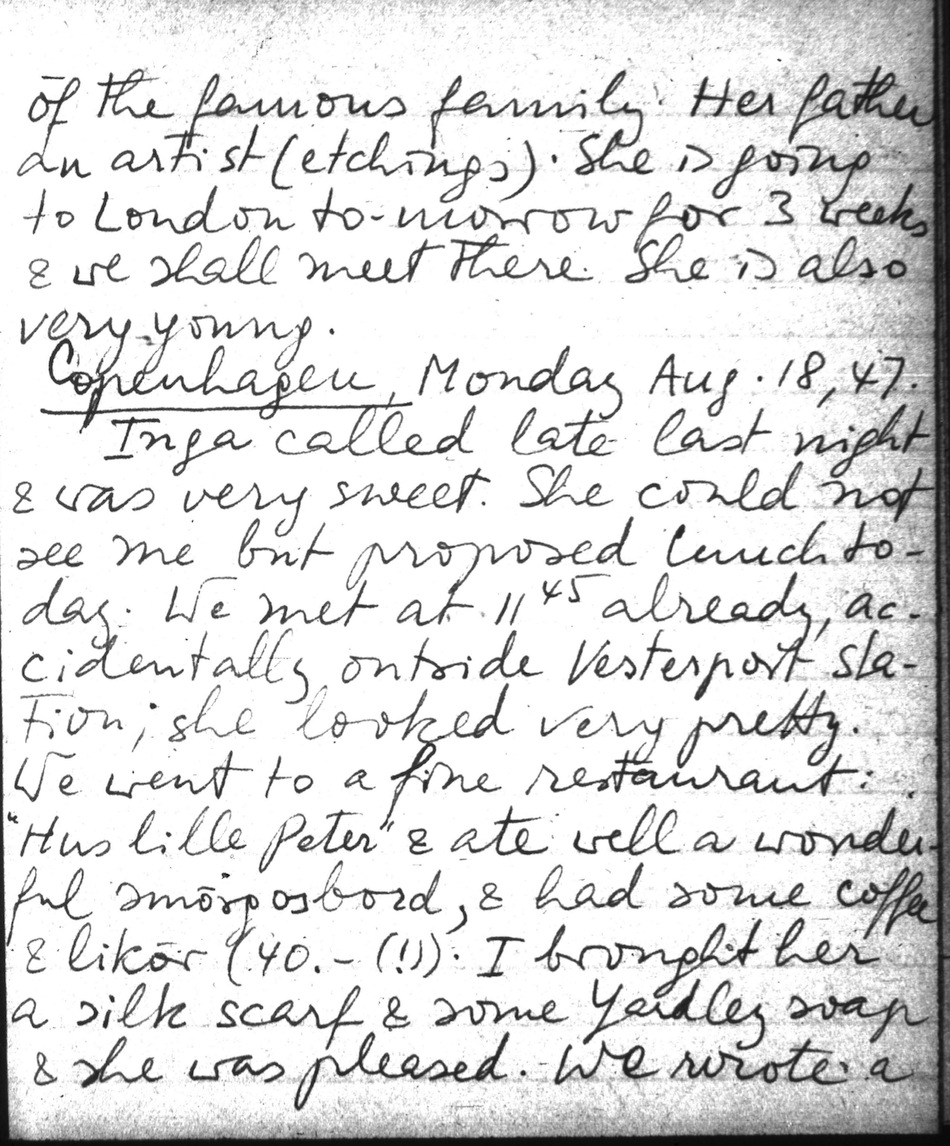 of the famous family. Her father
an artist (etchings). She is going
to London to-morrow for 3 weeks
& we shall meet there. She is also
very young.
Copenhagen, Monday Aug. 18, 47.
Inga called late last night
& was very sweet. She could not
see me but proposed lunch to-
day. We met at 11 45 already, ac-
cidentally outside Vesterport Sta-
tion; she looked very pretty.
We went to a fine restaurant:
"Hus lille Peter" & ate well a wonder-
ful smörgosbord, & had some coffee
& likör (40.- (!)). I brought her
a silk scarf & some Yardley soap
& she was pleased. We wrote a